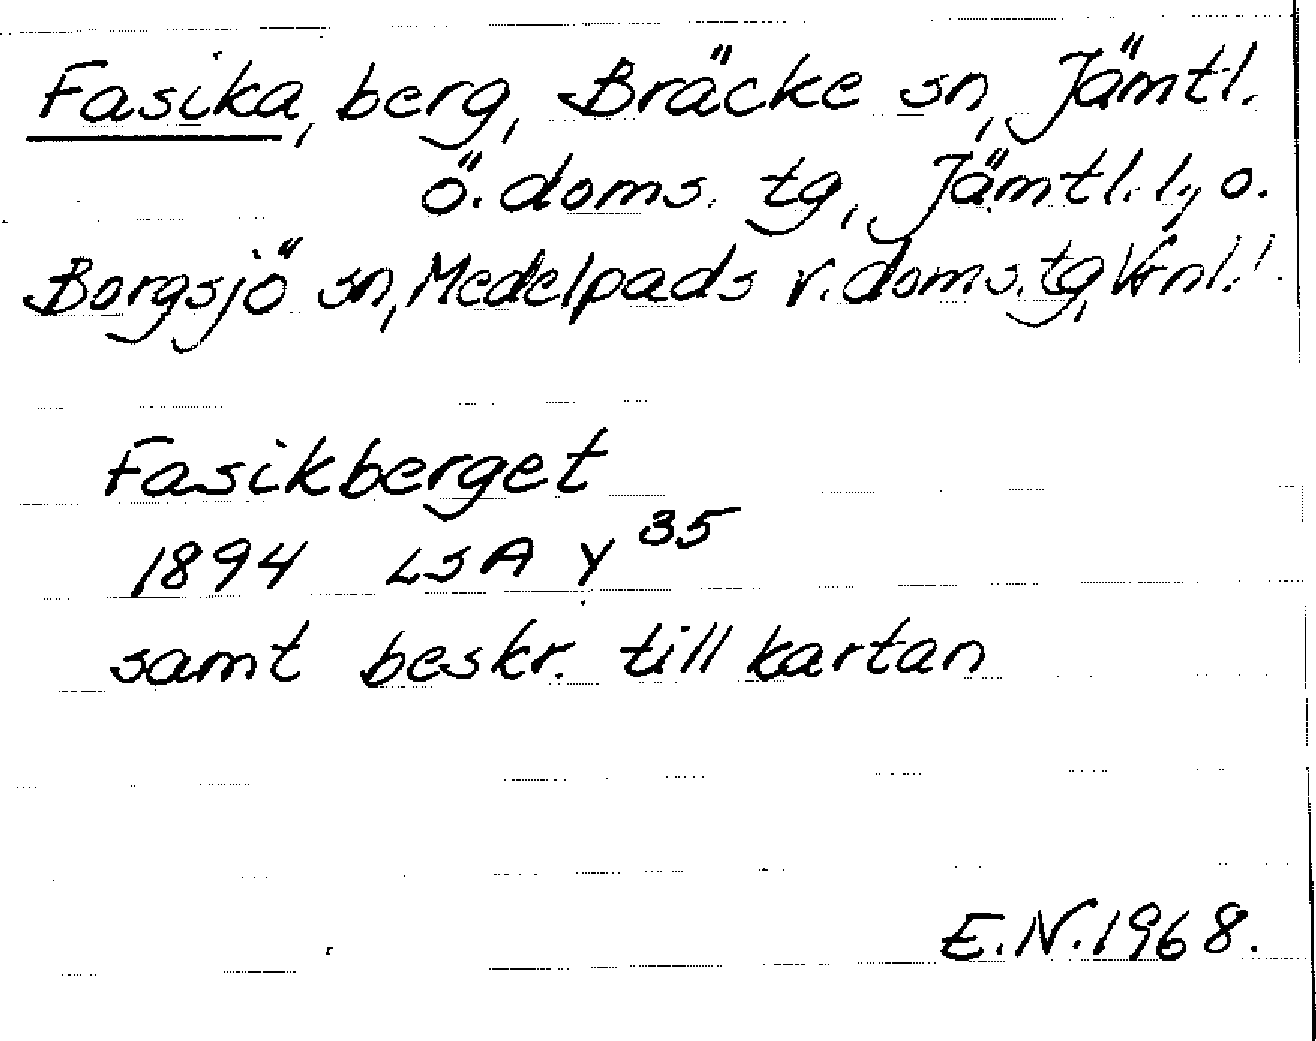 Fasika, berg, Bräcke sn, Jämtl.
ö. doms. tg, Jämtl. l., o.
Borgsjö sn, Medelpads v. doms. tg, Vrnl. l.
Fasikberget
1894 LSA Y 35
samt beskr. till kartan
E.N. 1968.